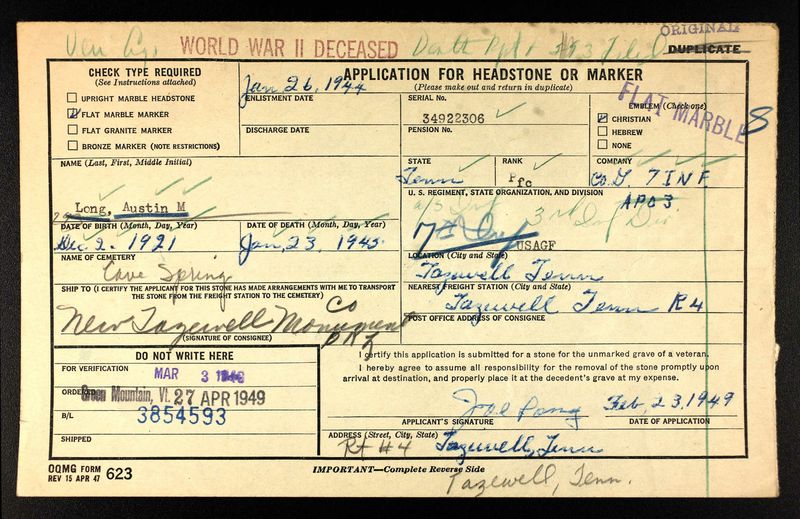 WORLD WAR II DECEASED
ORIGINAL
DUPLICATE
CHECK TYPE REQUIRED
(See Instructions attached)
UPRIGHT MARBLE HEADSTONE
FLAT MARBLE MARKER
FLAT GRANITE MARKER
BRONZE MARKER (NOTE RESTRICTIONS)
APPLICATION FOR HEADSTONE OR MARKER
(Please make out and return in duplicate)
Jan 26, 1944
ENLISTMENT DATE
DISCHARGE DATE
SERIAL No.
34922306
PENSION No.
EMBLEM (Check one)
CHRISTIAN
HEBREW
NONE
FLAT MARBLE
8
NAME (Last, First, Middle Initial)
Long, Austin M
STATE
Tenn
RANK
Pfc
COMPANY
Co. G. 7 INF
U. S. REGIMENT, STATE ORGANIZATION, AND DIVISION
APO 3
3rd Inf Div
USAGF
DATE OF BIRTH (Month, Day, Year)
Dec 2. 1921
DATE OF DEATH (Month, Day, Year)
Jan, 23, 1945
NAME OF CEMETERY
Cave Spring
LOCATION (City and State)
Tazewell Tenn
SHIP TO (I CERTIFY THE APPLICANT FOR THIS STONE HAS MADE ARRANGEMENTS WITH ME TO TRANSPORT THE STONE FROM THE FREIGHT STATION TO THE CEMETERY)
NEAREST FREIGHT STATION (City and State)
Tazewell Tenn R4
New Tazewell Monument Co
(SIGNATURE OF CONSIGNEE)
POST OFFICE ADDRESS OF CONSIGNEE
DO NOT WRITE HERE
FOR VERIFICATION
MAR 3 1949
ORDERED
Green Mountain, Vt. 27 APR 1949
B/L
3854593
SHIPPED
I certify this application is submitted for a stone for the unmarked grave of a veteran.
I hereby agree to assume all responsibility for the removal of the stone promptly upon
arrival at destination, and properly place it at the decedent's grave at my expense.
Joe Long Feb, 23, 1949
APPLICANT'S SIGNATURE
DATE OF APPLICATION
ADDRESS (Street, City, State)
Rt #4 Tazewell, Tenn
OQMG FORM
REV 15 APR 47 623
IMPORTANT—Complete Reverse Side
Tazewell, Tenn.